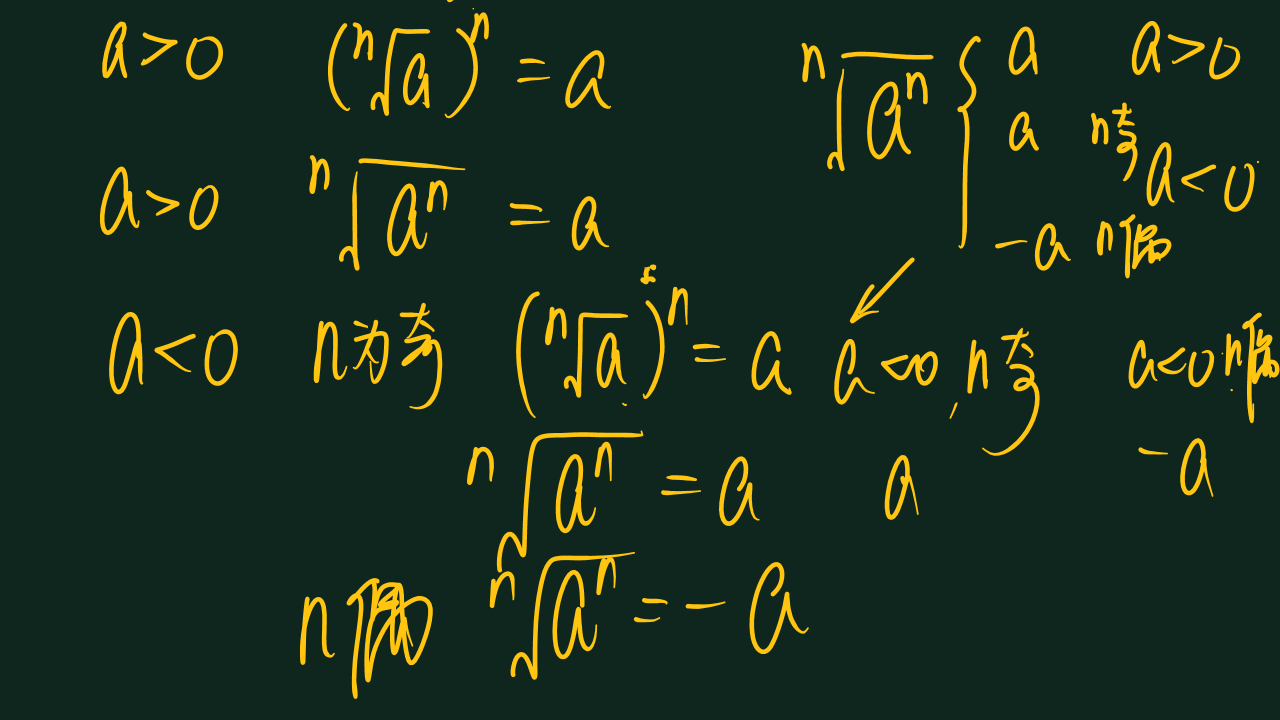 a>0 (ⁿ√a)ⁿ = a
a>0 ⁿ√aⁿ = a
a<0 n为奇 (ⁿ√a)ⁿ = a
ⁿ√aⁿ = a
n偶 ⁿ√aⁿ = -a
ⁿ√aⁿ { a a>0
a n奇 a<0
-a n偶
a<0, n奇 a<0 n偶
a -a